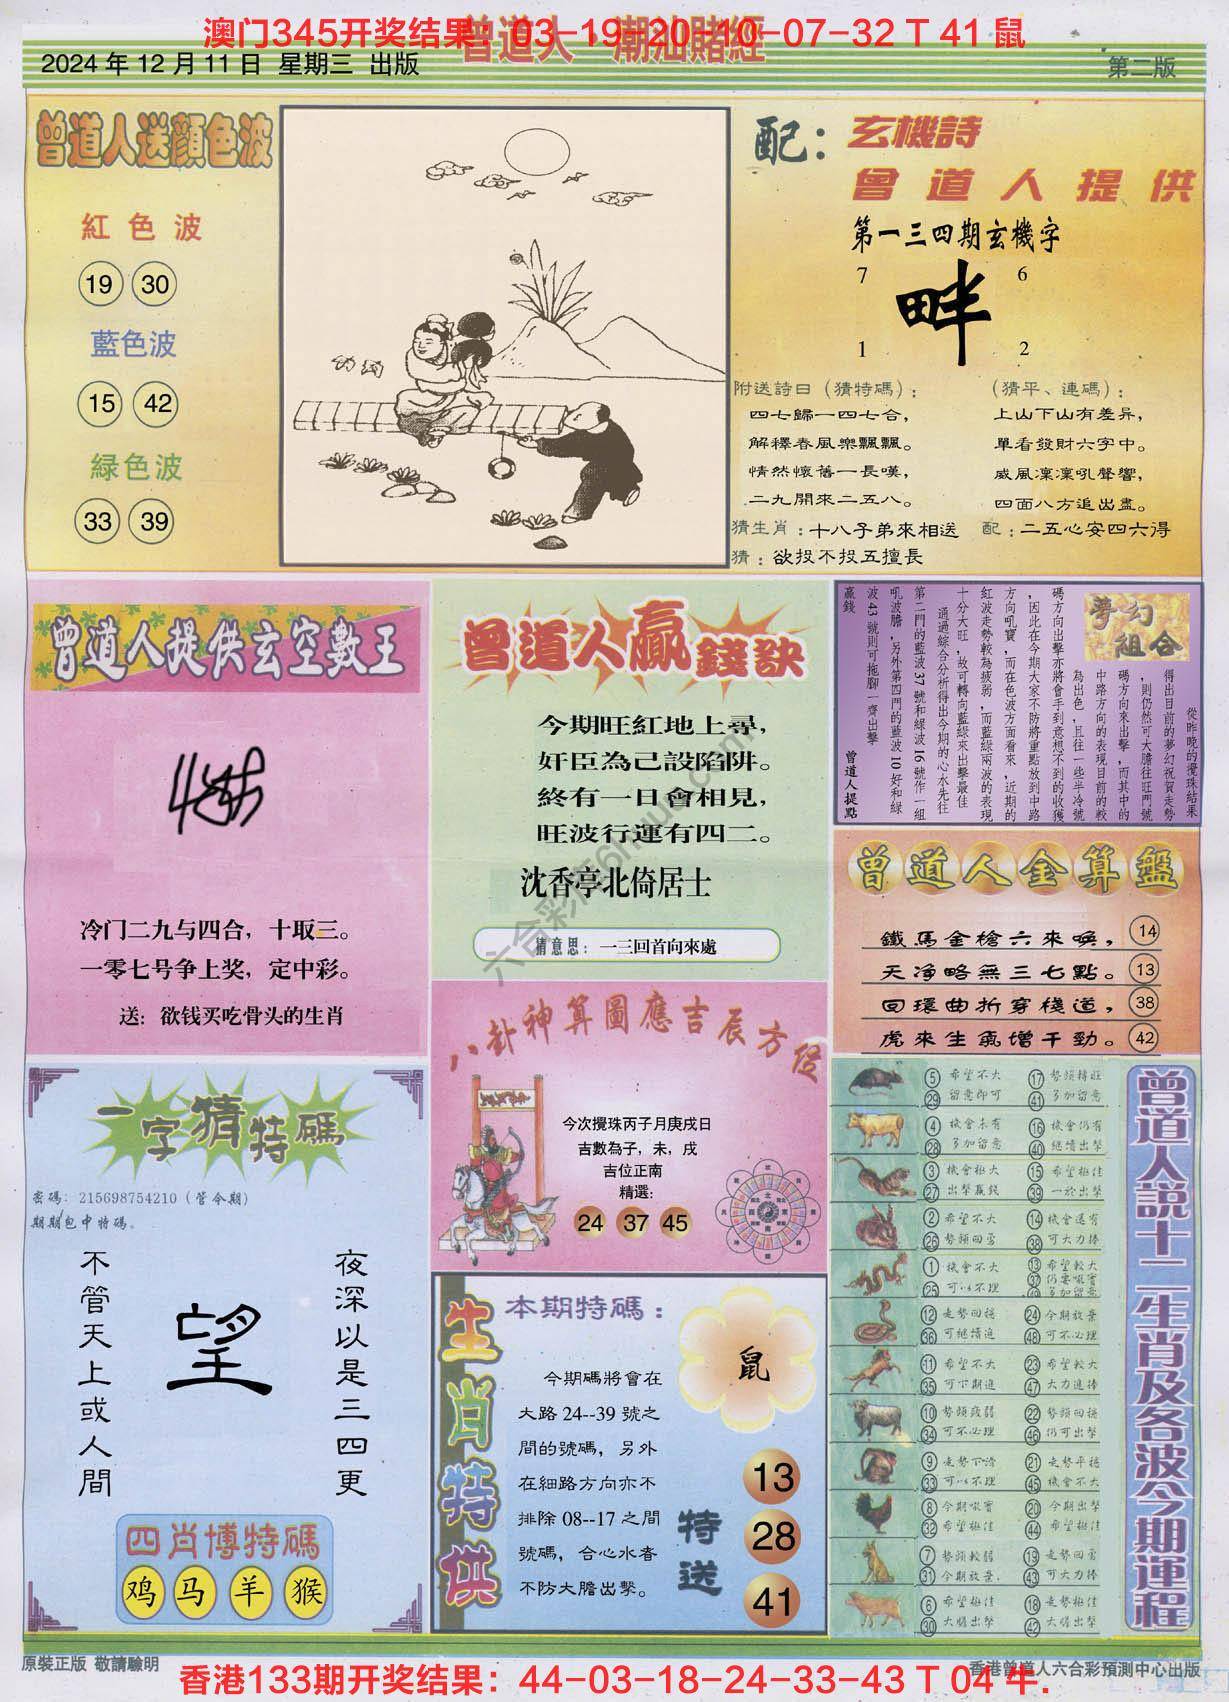 澳门345开奖结果：03-19-20-10-07-32 T 41 鼠
曾道人 潮汕賭經
2024 年 12 月 11 日 星期三 出版
第二版
曾道人送顏色波
紅色波
19 30
藍色波
15 42
綠色波
33 39
配：玄機詩
曾道人提供
第一三四期玄機字
7 6
畔
1 2
附送詩曰（猜特碼）：
四七歸一四七合，
解釋春風樂飄飄。
情然懷舊一長嘆，
二九開來二五八。
（猜平、連碼）：
上山下山有差异，
單看發財六字中。
威風凜凜吼聲響，
四面八方追出盡。
猜生肖：十八子弟來相送
配：二五心安四六得
猜：欲投不投五擅長
曾道人提供玄空數王
冷门二九与四合，十取三。
一零七号争上奖，定中彩。
送：欲钱买吃骨头的生肖
曾道人贏錢訣
今期旺紅地上尋，
奸臣為己設陷阱。
終有一日會相見，
旺波行運有四二。
沈香亭北倚居士
猜意思：一三回首向來處
夢幻組合
從昨晚的攪珠結果
得出目前的夢幻祝賀走勢
，則仍然可大膽往旺門號
碼方向來出擊，而其中的
中路方向的表現目前的較
為出色，且往一些半冷號
碼方向出擊亦將會手到意想不到的收獲
，因此在今期大家不防將重點放到中路
方向吼寶，而在色波方面看來，近期的
紅波走勢較為疲弱，而藍綠兩波的表現
十分大旺，故可轉向藍綠來出擊最佳
通過綜合分析得出今期的心水先往
第二門的藍波 37 號和綠波 16 號作一組
吼波膽，另外第四門的藍波 10 好和綠
波 43 號則可拖腳一齊出擊
贏錢
曾道人提點
曾道人金算盤
鐵馬金槍六來喚， 14
天淨略無三七點。 13
回環曲折穿棧道， 38
虎來生氣增干勁。 42
八卦神算圖應吉辰方位
今次攪珠丙子月庚戌日
吉數為子，未，戌
吉位正南
精選：
24 37 45
一字猜特碼
密碼：215698754210（管今期）
期期包中特碼。
夜深以是三四更
望
不管天上或人間
四肖博特碼
鸡 马 羊 猴
生肖特供
本期特碼：
鼠
今期碼將會在
大路 24--39 號之
間的號碼，另外
在細路方向亦不
排除 08--17 之間
號碼，合心水者
不防大膽出擊。
特送
13
28
41
曾道人説十二生肖及各波今期運程
5 希望不大 17 勢頭轉旺
29 留意即可 41 多加留意
4 機會未有 16 機會仍有
28 多加留意 40 繼續出擊
3 機會極大 15 希望極佳
27 出擊贏錢 39 一於出擊
2 希望不大 14 機會還有
26 勢頭回勇 38 可大力捧
1 機會不大 13 希望較大
25 可以不理
12 走勢回穩 24 今期放棄
36 可繼續追 48 可不必理
11 希望不大 23 希望較大
35 可下期追 47 大力追捧
10 勢頭疲弱 22 勢頭回穩
34 可不必理 46 仍可出擊
9 走勢下滑 21 走勢平穩
33 可以不理 45 機會不大
8 今期吼寶 20 今期出擊
32 希望極佳 44 希望極佳
7 勢頭較弱 19 走勢回勇
31 今期放棄. 43 可大力捧
6 希望極佳 18 走勢極佳
30 大膽出擊 42 大膽出擊
原裝正版 敬請驗明
香港曾道人六合彩預測中心出版
香港133期开奖结果：44-03-18-24-33-43 T 04 牛.